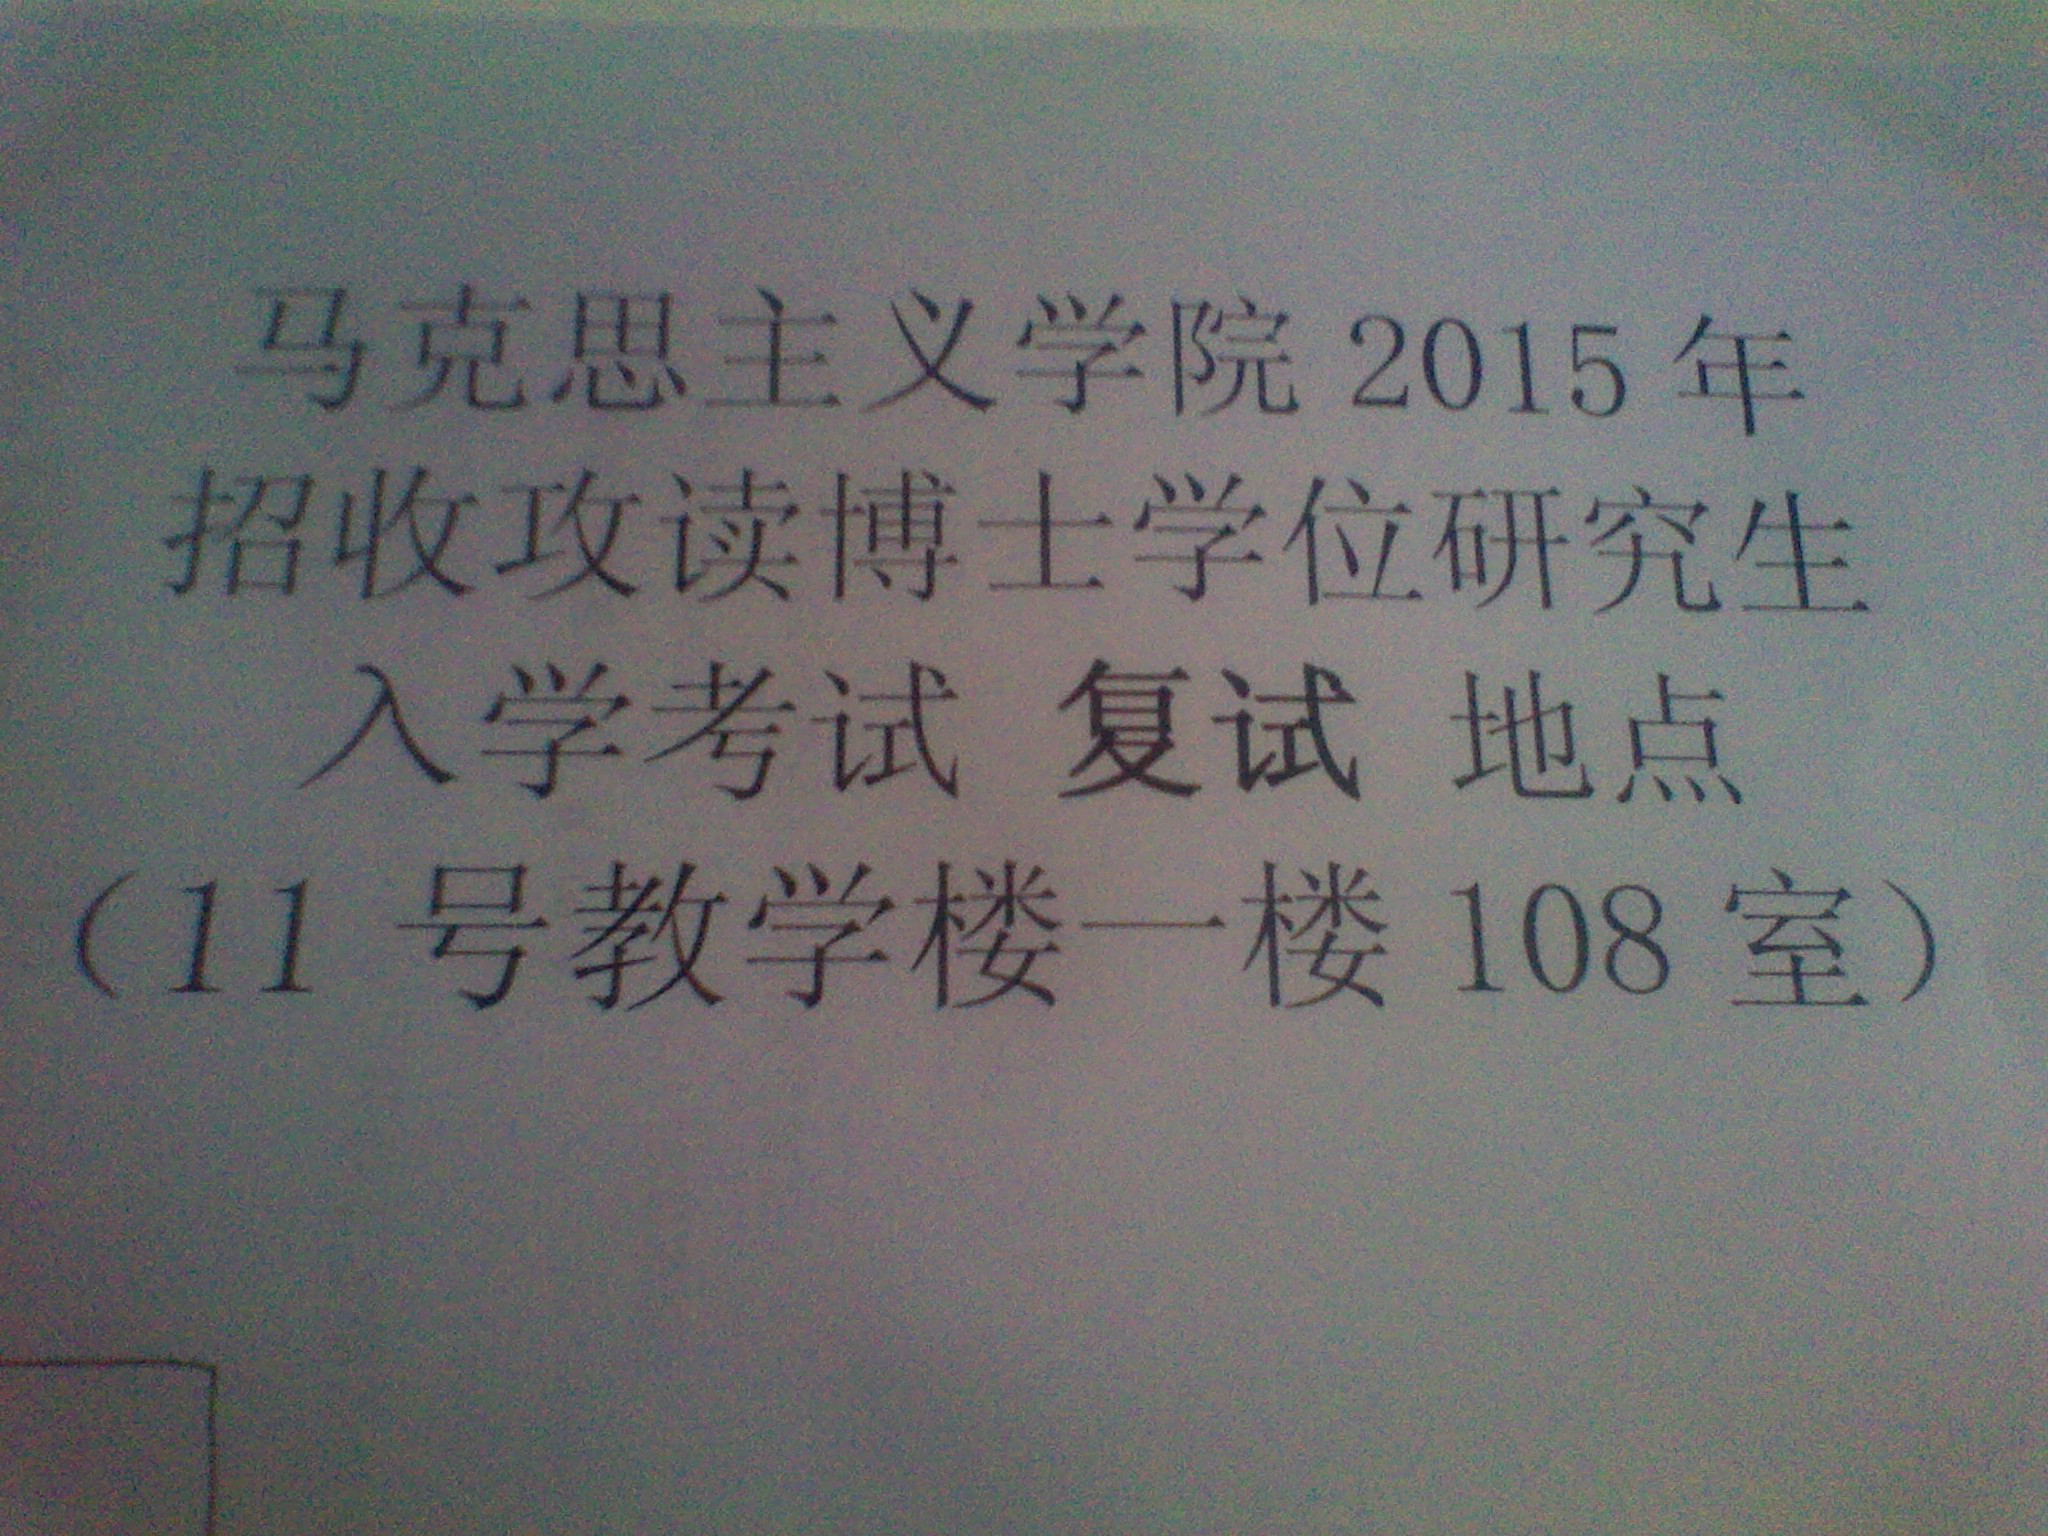 马克思主义学院 2015 年
招收攻读博士学位研究生
入学考试 复试 地点
（11 号教学楼一楼 108 室）